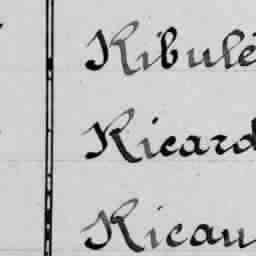 Ribulé
Ricard
Ricau